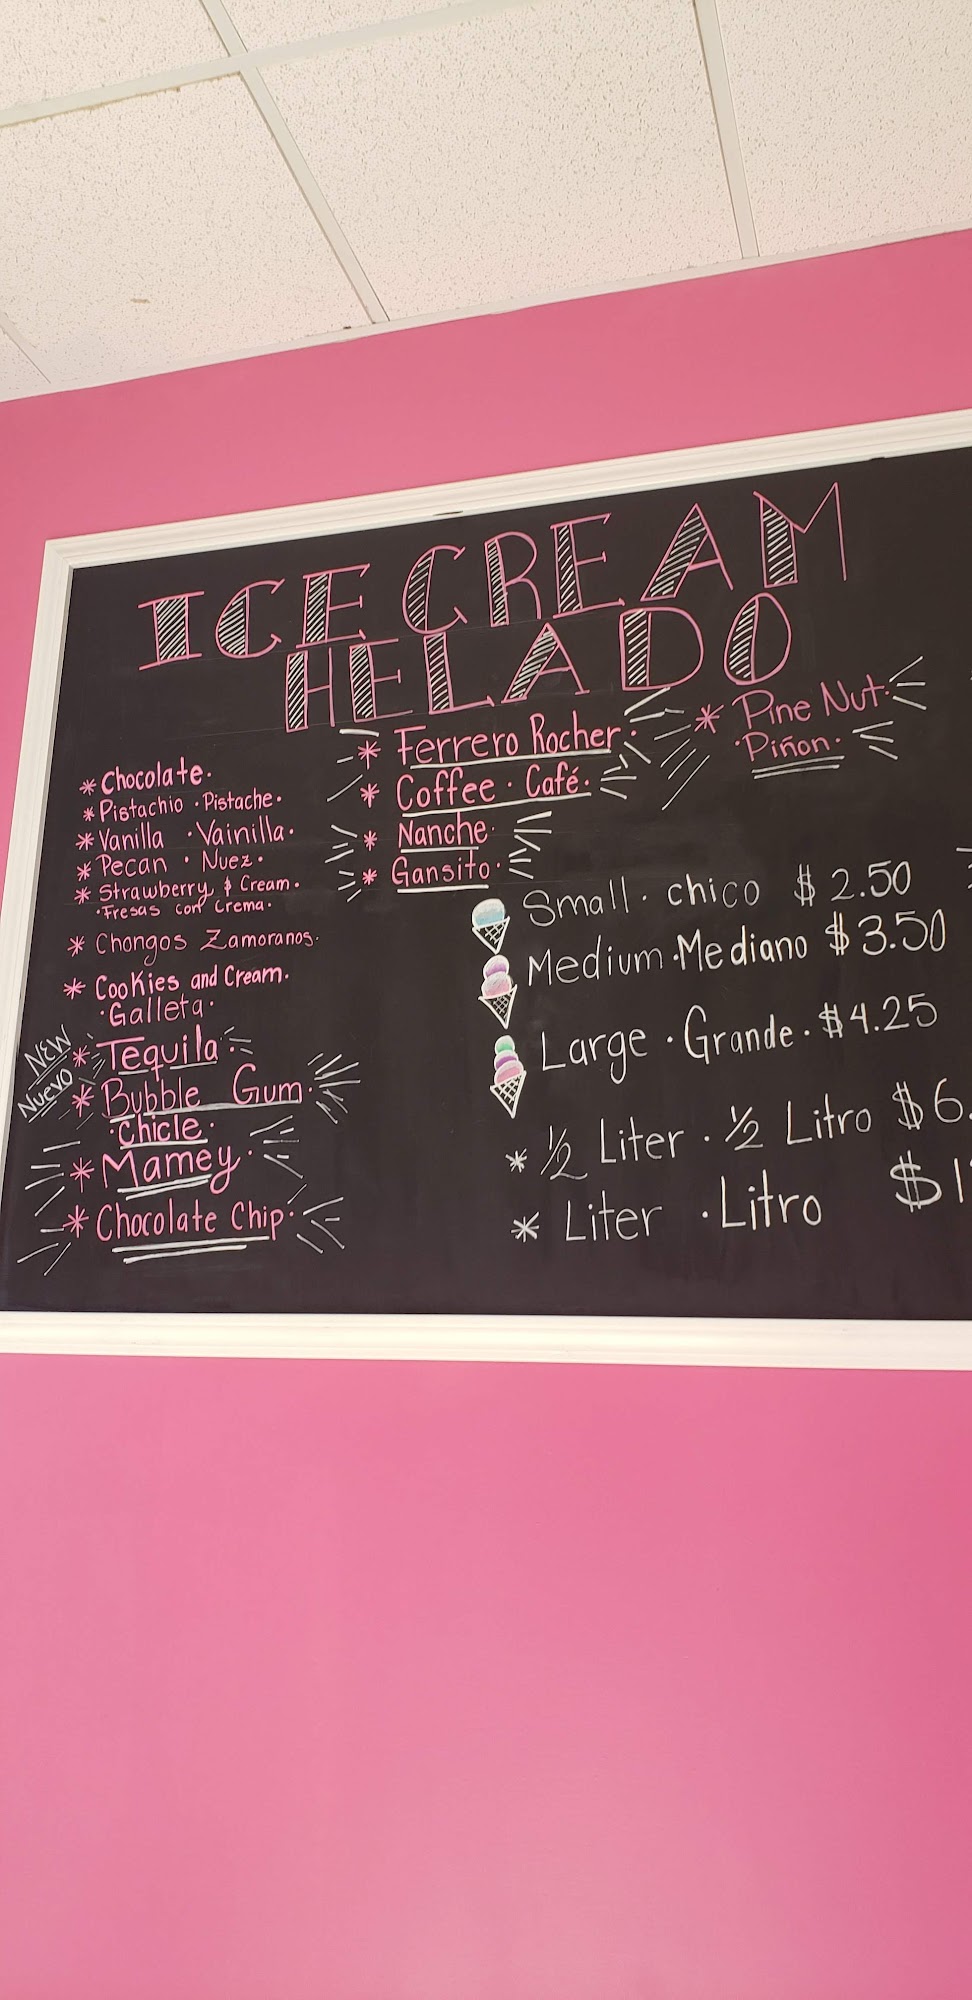 ICE CREAM
HELADO
* Chocolate.
* Pistachio . Pistache.
* Vanilla . Vainilla.
* Pecan . Nuez.
* Strawberry & Cream.
. Fresas con Crema.
* Chongos Zamoranos.
* Cookies and Cream.
. Galleta.
NEW
Nuevo
* Tequila.
* Bubble Gum.
. Chicle.
* Mamey.
* Chocolate Chip.
* Ferrero Rocher.
* Coffee . Café.
* Nanche.
* Gansito.
* Pine Nut.
. Piñon.
Small . chico $ 2.50
Medium . Mediano $ 3.50
Large . Grande . $4.25
* ½ Liter . ½ Litro $6.
* Liter . Litro $1